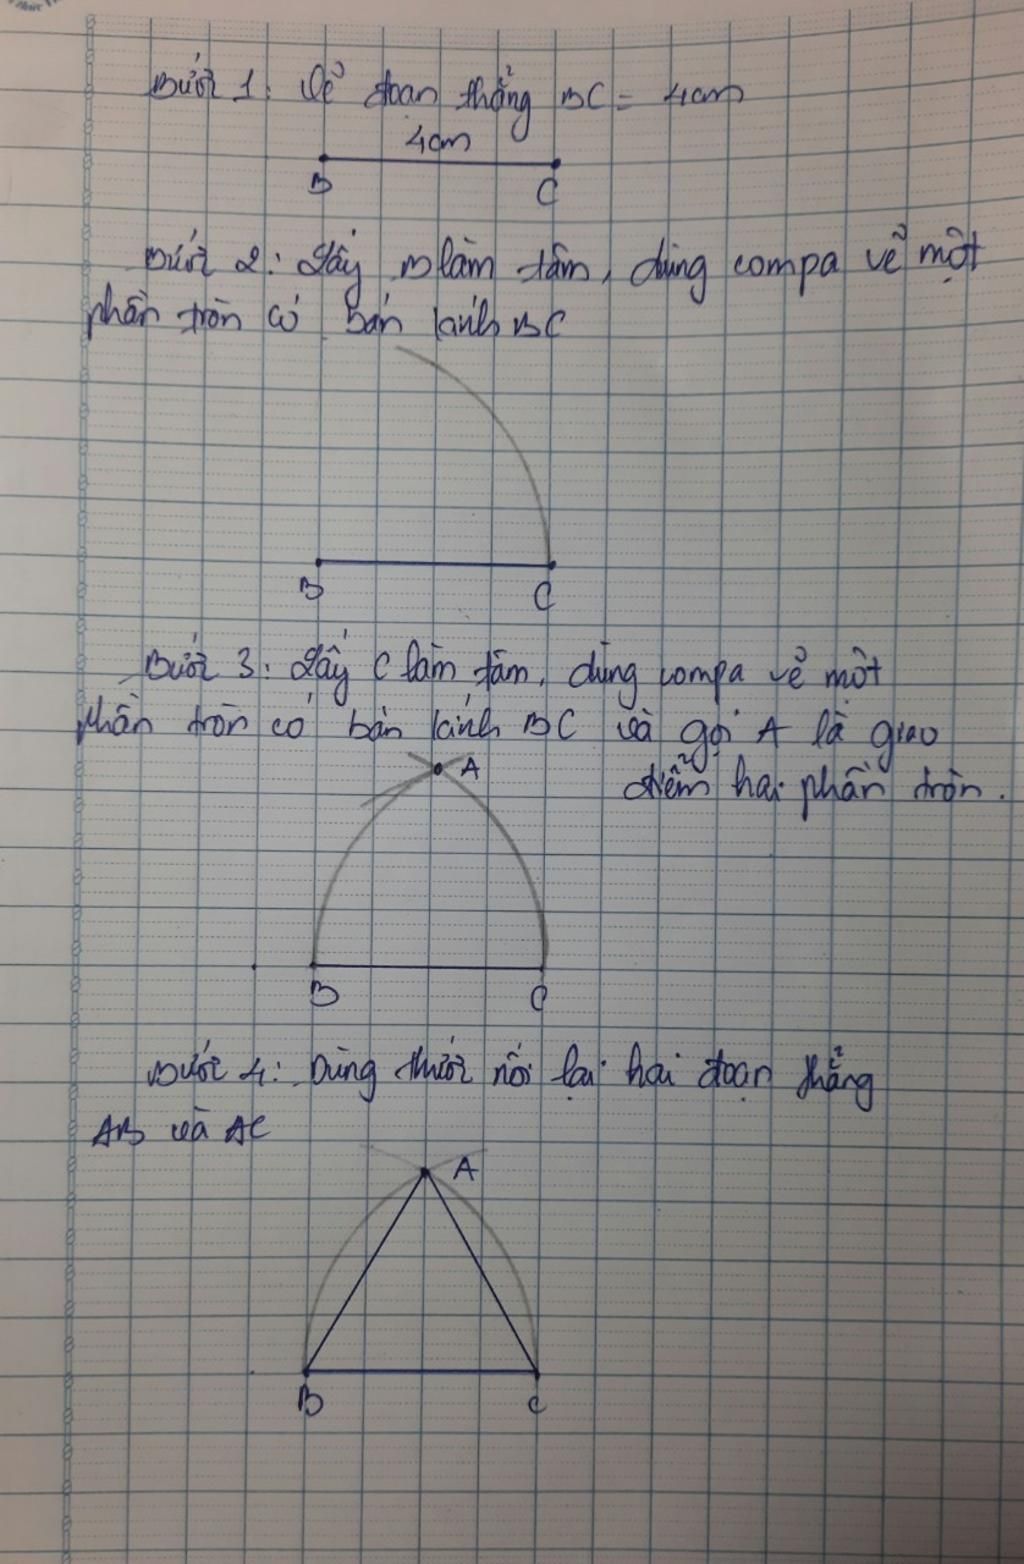 Bước 1: Vẽ đoạn thẳng BC = 4cm
4cm
B C
Bước 2: Lấy B làm tâm, dùng compa vẽ một
phần tròn có bán kính BC
B C
Bước 3: Lấy C làm tâm, dùng compa vẽ một
phần tròn có bán kính BC và gọi A là giao
điểm hai phần tròn.
A
B C
Bước 4: Dùng thước nối lại hai đoạn thẳng
AB và AC
A
B C